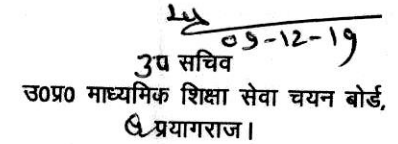 09-12-19
उप सचिव
उ०प्र० माध्यमिक शिक्षा सेवा चयन बोर्ड,
प्रयागराज।